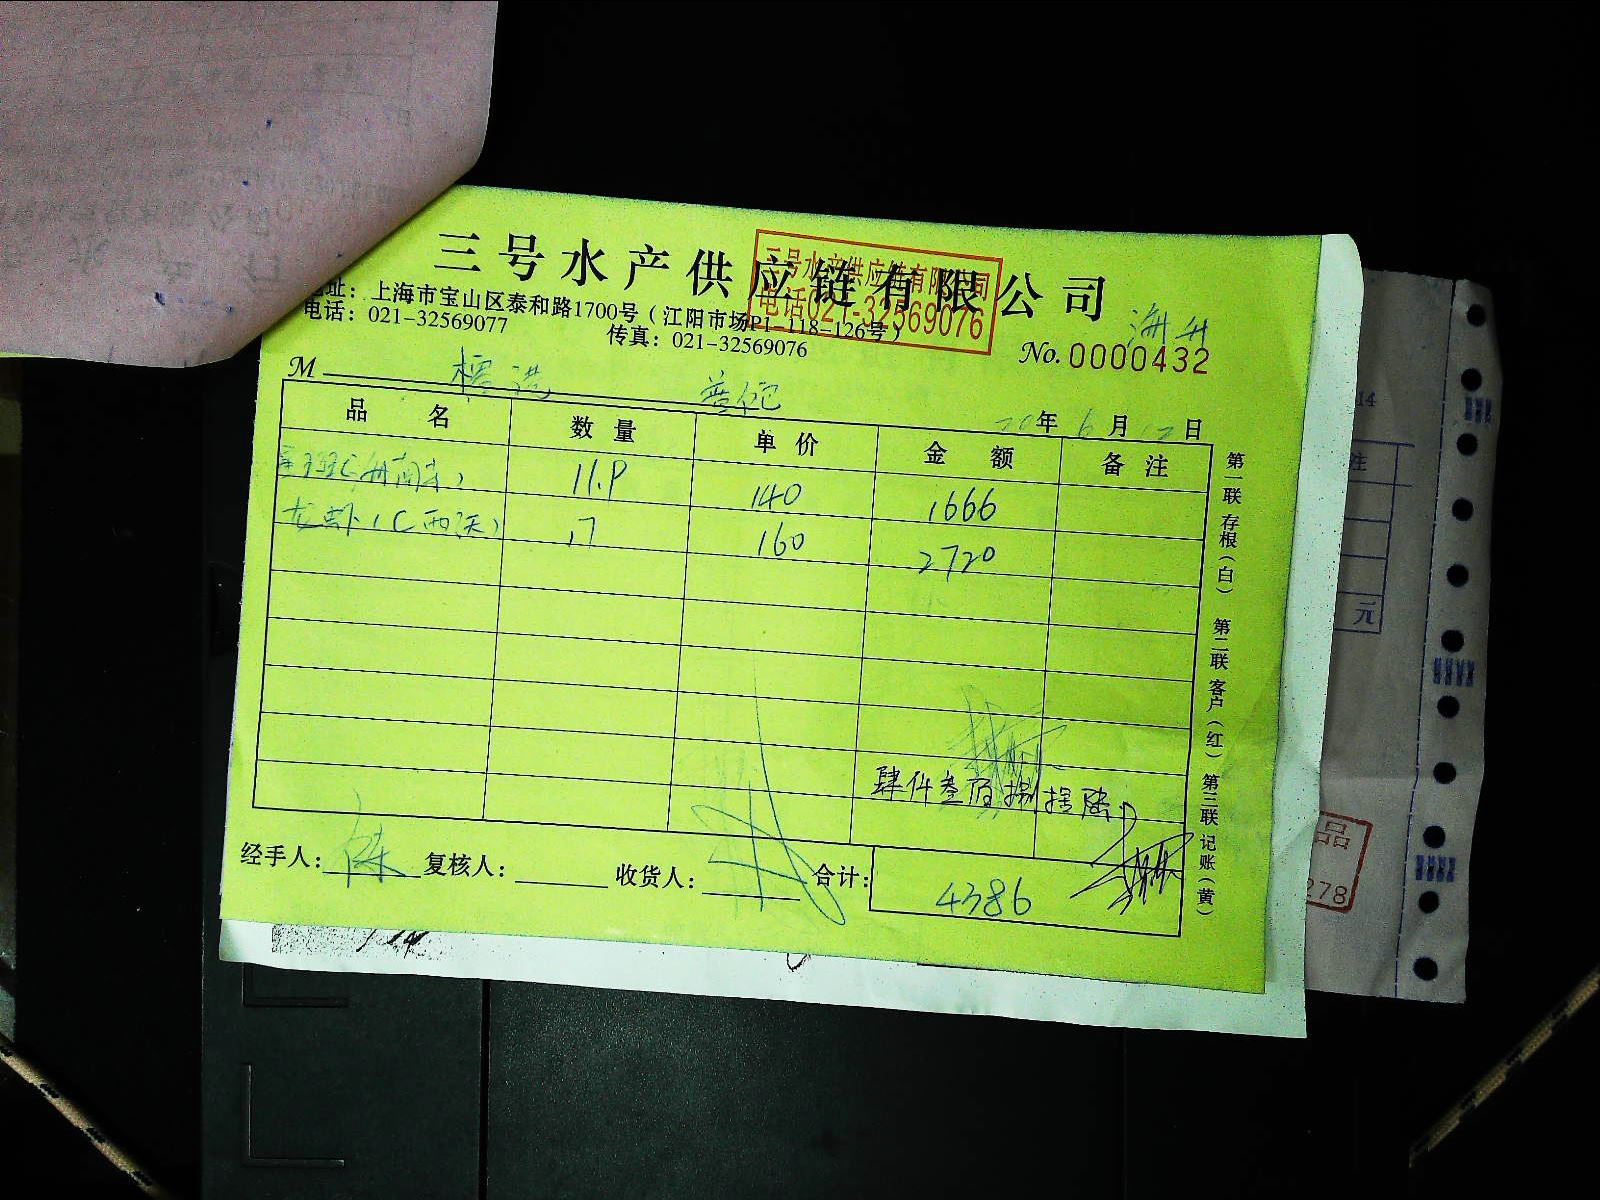 三号水产供应链有限公司
三号水产供应链有限公司
电话021-32569076
地址：上海市宝山区泰和路1700号（江阳市场P1-118-126号）
电话：021-32569077 传真：021-32569076
No. 0000432
M
20年6月12日
品名 数量 单价 金额 备注
11.9 140 1666
龙虾 17 160 2720
肆仟叁佰捌拾陆
经手人： 复核人： 收货人： 合计： 4386
第一联存根（白） 第二联客户（红） 第三联记账（黄）
14
注
元
品
278